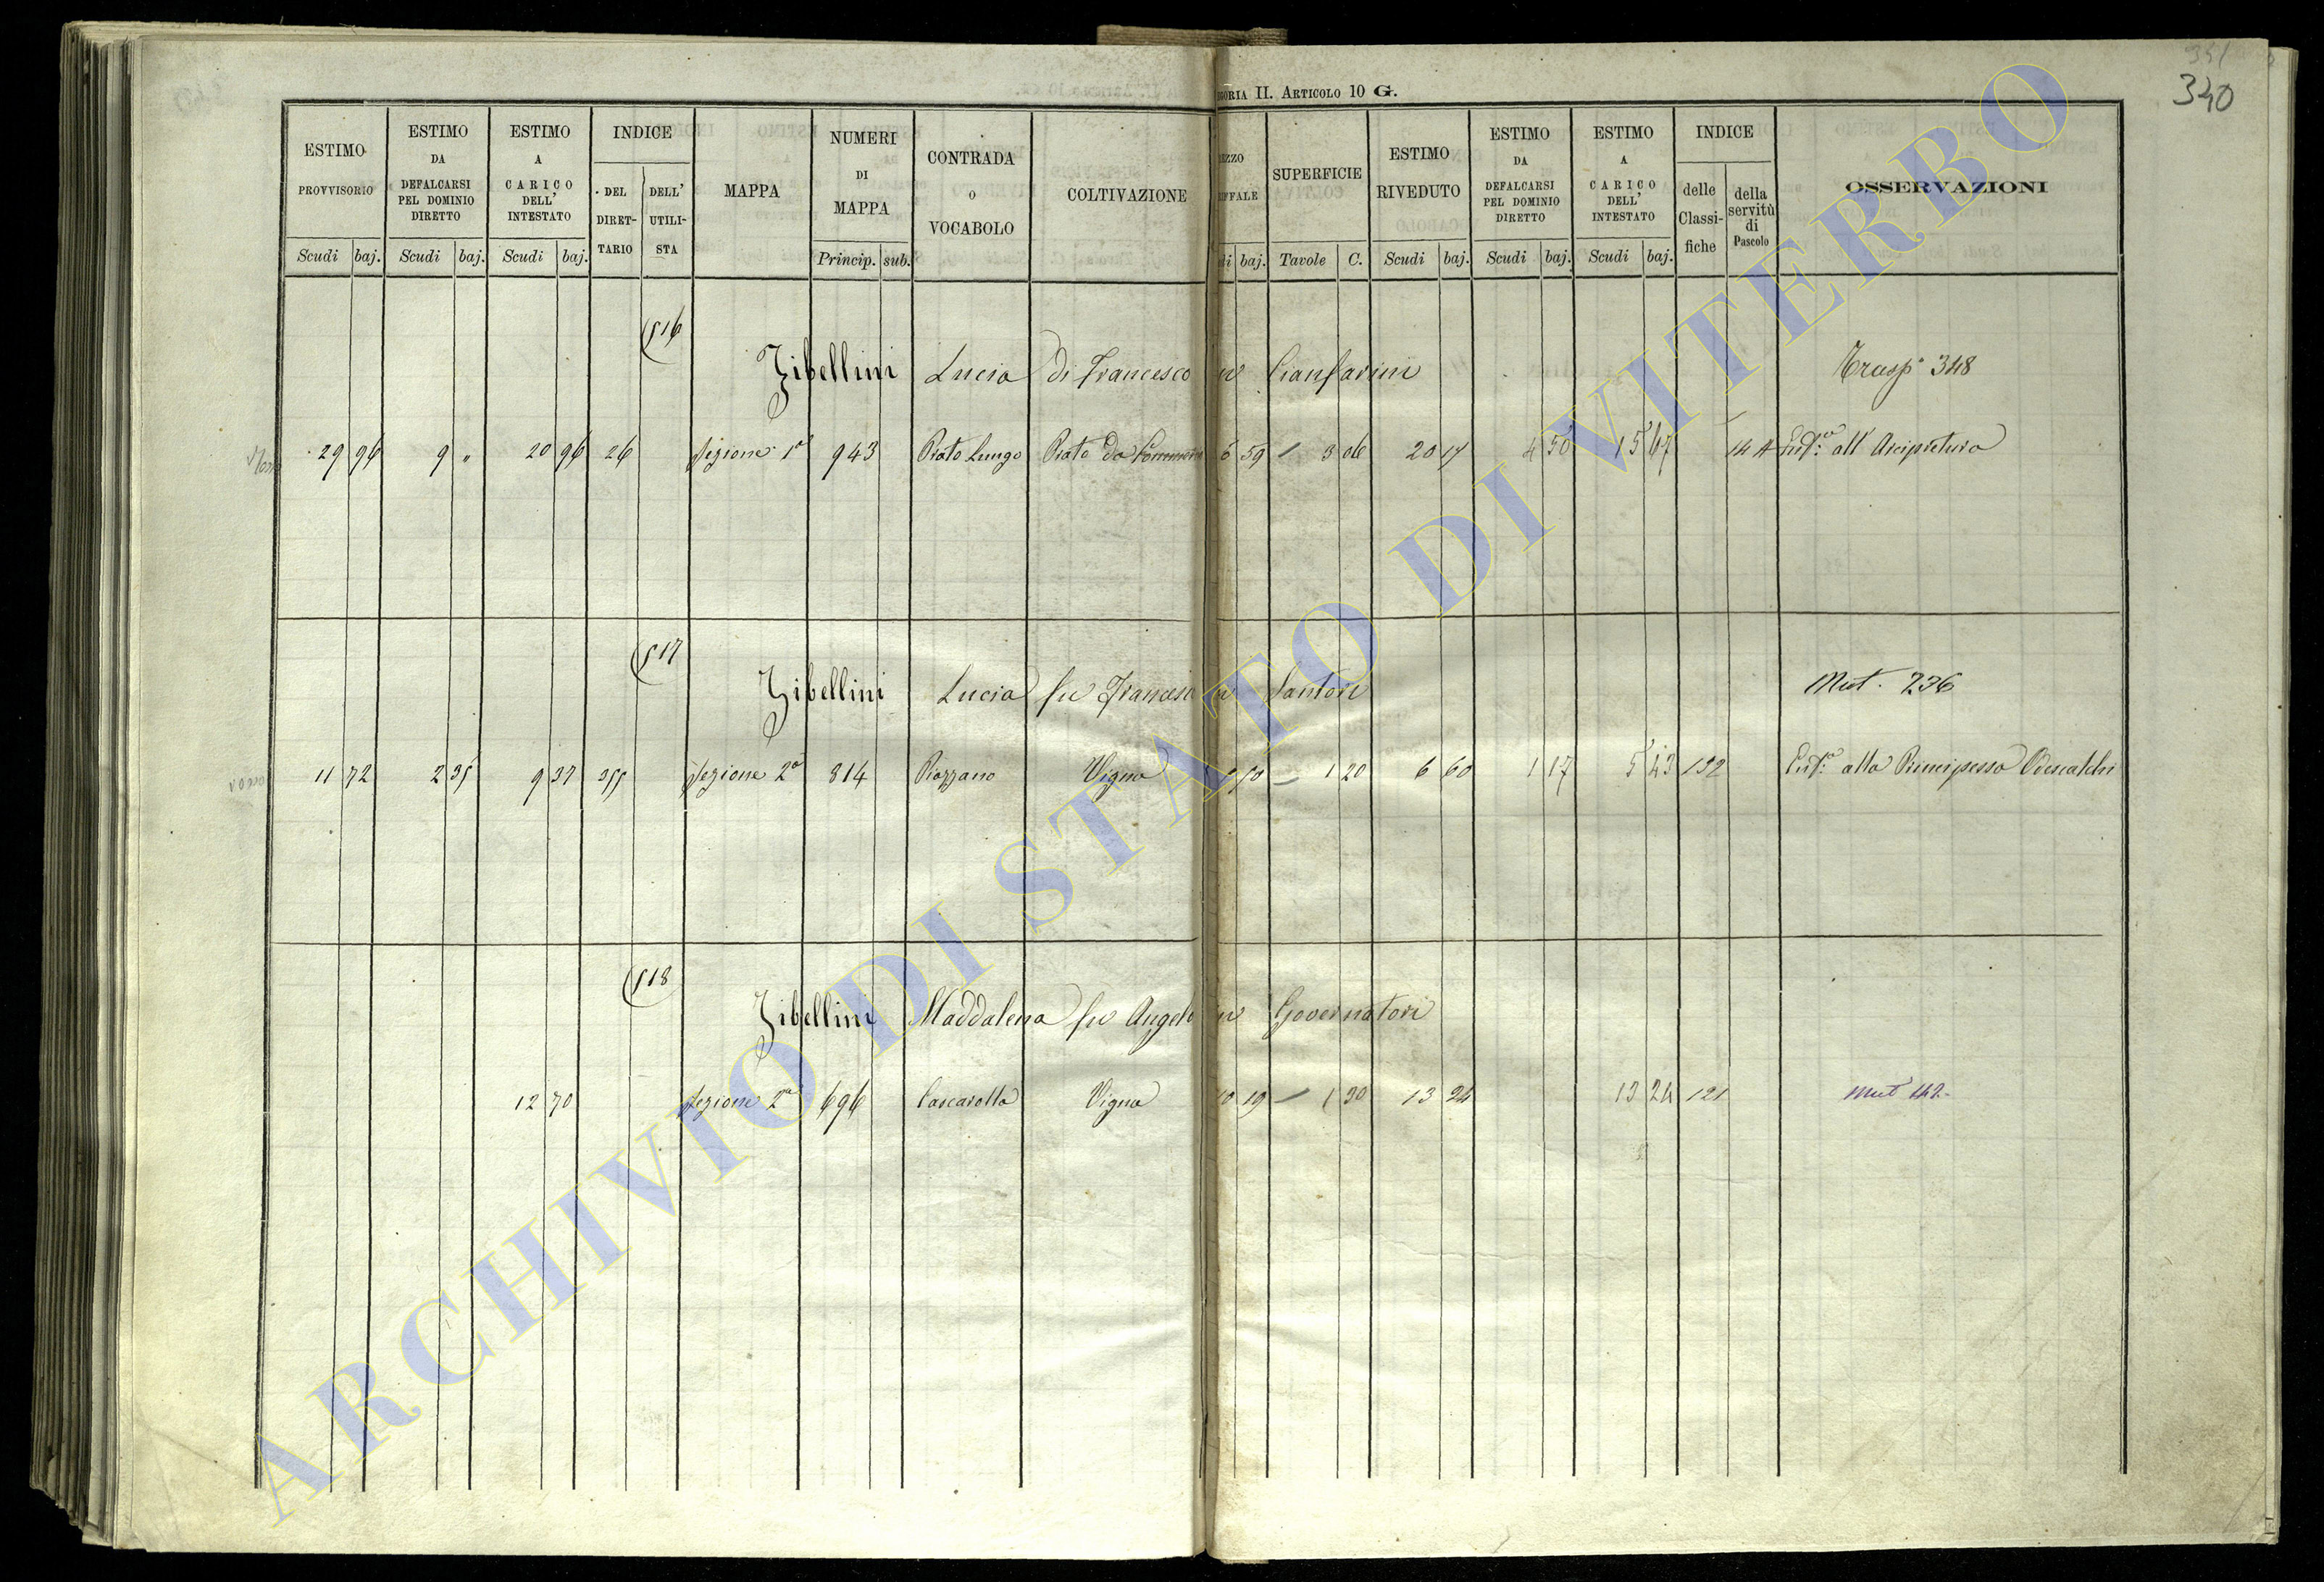 340
EGORIA II. ARTICOLO 10 G.
ESTIMO PROVVISORIO Scudi baj.
ESTIMO DA DEFALCARSI PEL DOMINIO DIRETTO Scudi baj.
ESTIMO A CARICO DELL' INTESTATO Scudi baj.
INDICE DEL DIRETTARIO DELL' UTILISTA
MAPPA
NUMERI DI MAPPA Princip. sub.
CONTRADA o VOCABOLO
COLTIVAZIONE
EZZO IFFALE di baj.
SUPERFICIE Tavole C.
ESTIMO RIVEDUTO Scudi baj.
ESTIMO DA DEFALCARSI PEL DOMINIO DIRETTO Scudi baj.
ESTIMO A CARICO DELL' INTESTATO Scudi baj.
INDICE delle Classifiche della servitù di Pascolo
OSSERVAZIONI
516
Zibellini Lucia di Francesco in Cianfarini Trasp. 348
29 96 9 " 20 96 26 Sezione 1a 943 Prato Lungo Prato da 6 59 3 06 20 17 4 50 15 67 14 A Enf.ca all' Arcipretura
517
Zibellini Lucia fu Francesco in Santori Mut. 236
11 72 2 35 9 37 355 Sezione 2a 814 Piazzano Vigna 50 1 20 6 60 1 17 5 43 132 Enf.ca alla Principessa Odescalchi
518
Zibellini Maddalena fu Angelo in Governatori
12 70 Sezione 2a 696 Cascarolla Vigna 10 19 1 30 13 24 13 24 121 Mut 142.
ARCHIVIO DI STATO DI VITERBO